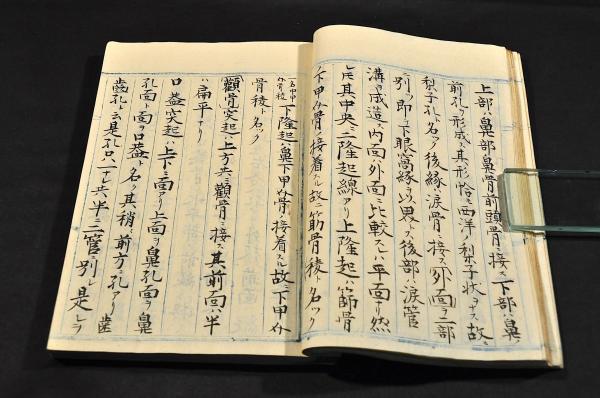 上部ハ鼻部鼻骨前頭骨ニ接ス下部ハ鼻
前孔ヲ形成ス其形恰モ西洋ノ梨子状ヲナス故ニ
梨子孔ト名ク後縁ハ涙骨ニ接ス外面ヲ二部ニ
別ツ即チ下眼窩縁ヲ以界トス後部ハ涙管
溝ヲ成造ス内面ハ外面ニ比較スレハ平面ナリ然
レ圧其中央ニ二隆起線アリ上隆起ハ篩骨
下甲介骨ニ接着スル故ニ筋骨稜ト名ツク
下隆起ハ鼻下甲介骨ニ接着スル故ニ下甲介
骨稜ト名ツク
顴骨突起ハ上方共ニ顴骨ニ接ス其前面ハ半
ハ扁平ナリ
口蓋突起ハ上下二面アリ上面ヲ鼻
孔面ト面ヲ口蓋ト名ク其稍前方ニ孔アリ歯
歯孔ト云是孔只一ナレ共半ニ二管ニ別レ是レヲ